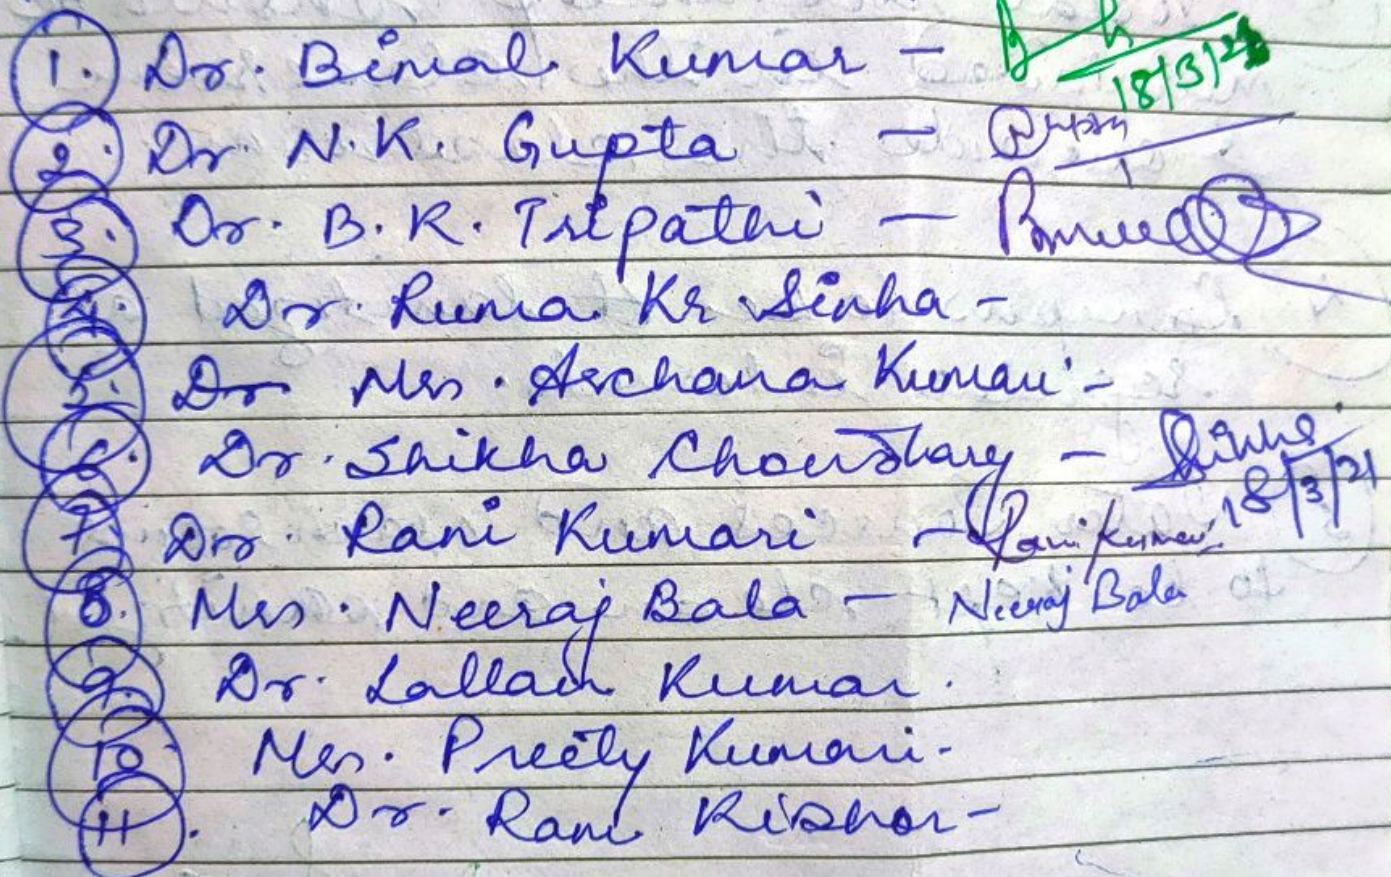 1. Dr. Bimal Kumar - 18/3/21
2. Dr. N.K. Gupta -
3. Dr. B.K. Tripathi -
4. Dr. Ruma Kr Sinha -
5. Dr Mrs. Archana Kumari -
6. Dr. Shikha Choudhary - 18/3/21
7. Dr. Rani Kumari - Rani Kumari
8. Mrs. Neeraj Bala - Neeraj Bala
9. Dr. Lallan Kumar.
10 Mrs. Preety Kumari -
11. Dr. Ram Kishor -